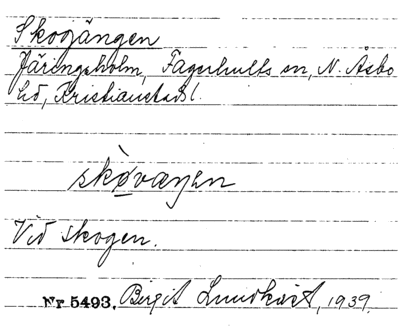 Skogängen
Färingsholm, Fagerhults sn, N. Åsbo
hd, Kristianstads l.
skòvaŋen
Vid skogen.
Nr 5493. Birgit Lundkvist, 1939.